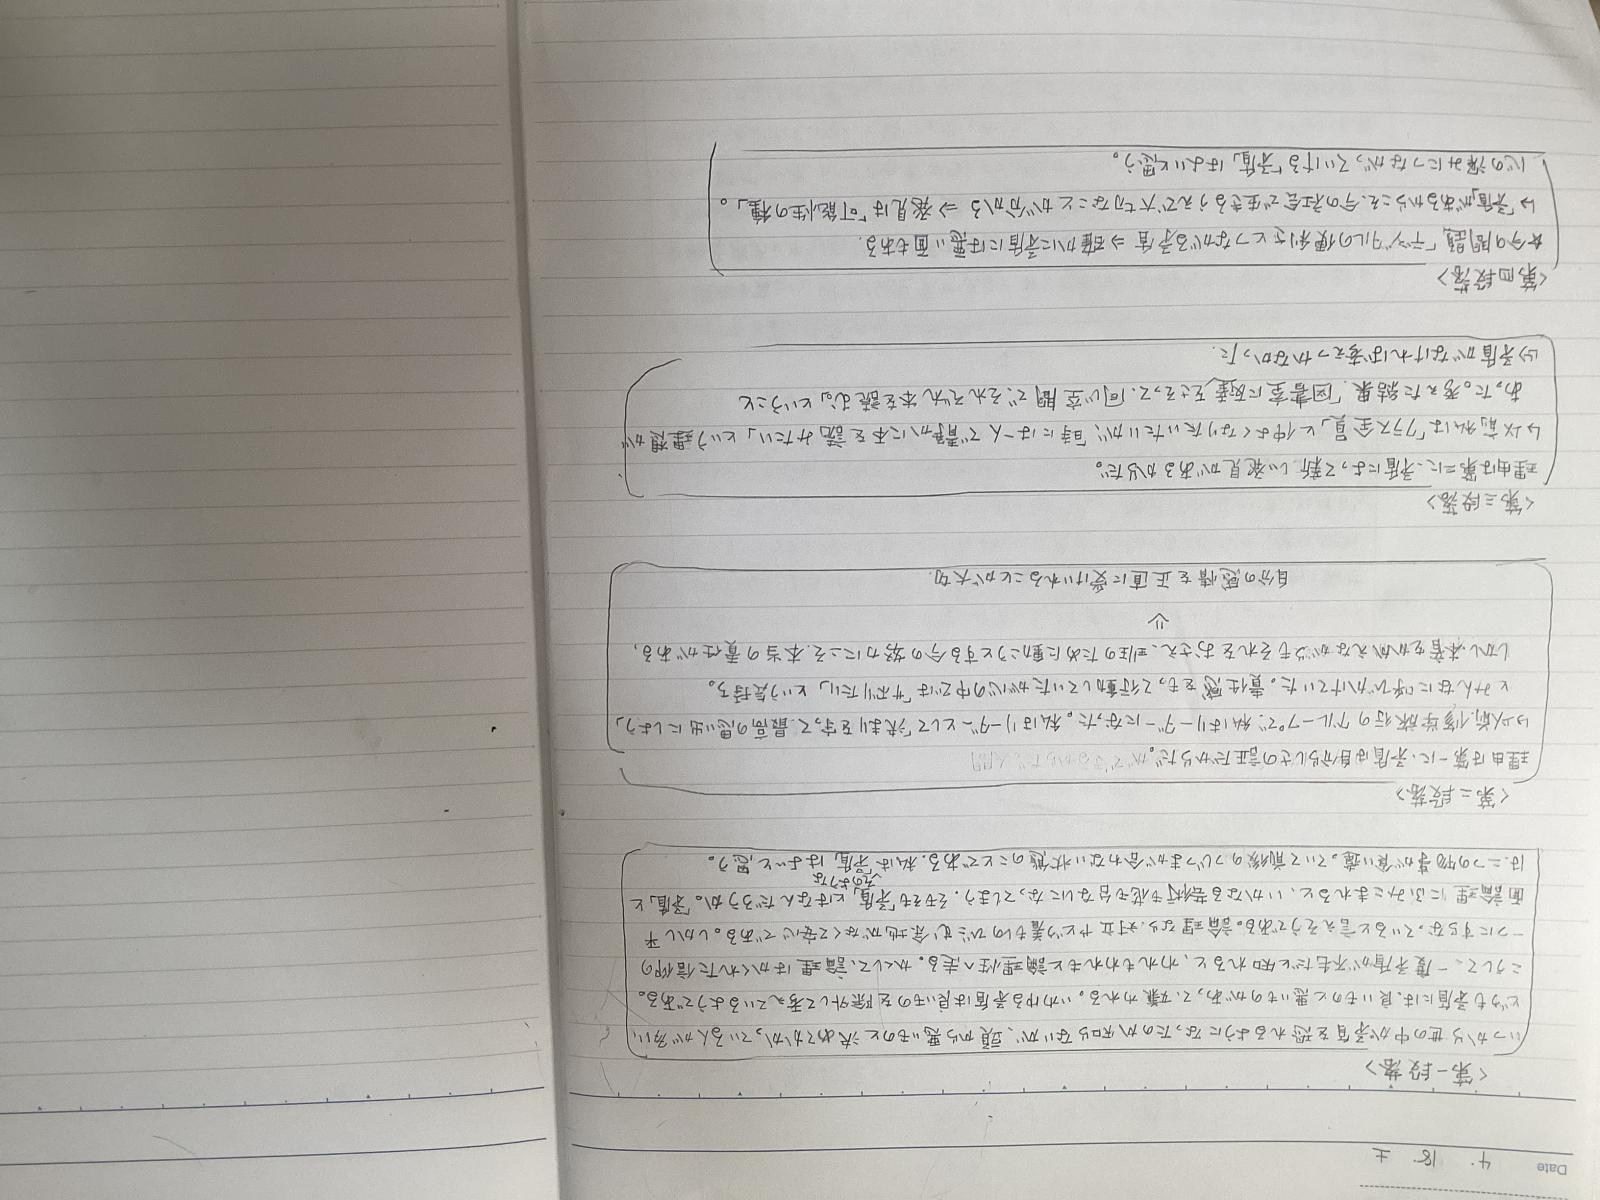 Date 4・18・土
<第一段落>
いつから世の中が矛盾を恐れるようになったのか知らないが、頭から悪いものと決めてかかっている人が多い
どうも矛盾には、良いものと悪いものがあって、嫌われる。いわゆる矛盾は良いものを除外して考えているようである。
こうして、一度矛盾が不名だと知れると、われもわれもと論理性へ走る。かくして、論理はかくれた信仰の
一つにすらなっていると言えそうである。論理なら、対立やどう着ものびこむ余地がなくて安心である。しかし平
面論理にふみこまれると、いかなる芸術も花も台ないになってしまう。そもそも「矛盾」とはどのようななんだろうか。「矛盾」と
は、二つの物事が食い違っていて前後のつじつまが合わない状態のことである。私は「矛盾」はよいと思う。
<第二段落>
理由は第一に、矛盾は自分らしさの証だからだ。
→以前、修学旅行のグループで、私はリーダーになった。私はリーダーとして「決まりを守って、最高の思い出にしよう」
とみんなに呼びかけていた。責任感をもって行動していたが心の中では「サボりたい」という気持ち。
しかし、本音をかかえながらもそれをおさえ、班のために動こうとする今の努力にこそ、本当の責任がある。
⇓
自分の感情を正直に受けいれることが大切
<第三段落>
理由は第二に、矛盾によって新しい発見があるからだ。
→以前、私は「クラス全員」と仲よくなりたいたいが、「時には一人で静かに本を読みたい」という理想が
あった。考えた結果、「図書室に友達をさそって、同じ空間でそれぞれ本を読む。」ということ
⇒矛盾がなければ考えつかなかった。
<第四段落>
☆今の問題「デジタルの便利さとつながる矛盾 ⇒ 確かに矛盾には悪い面もある。
→「矛盾」があるからこそ、今の社会で生きるうえで大切なことが分かる ⇒ 発見は「可能性の種」。
心の深みにつながっていける「矛盾」はよいと思う。